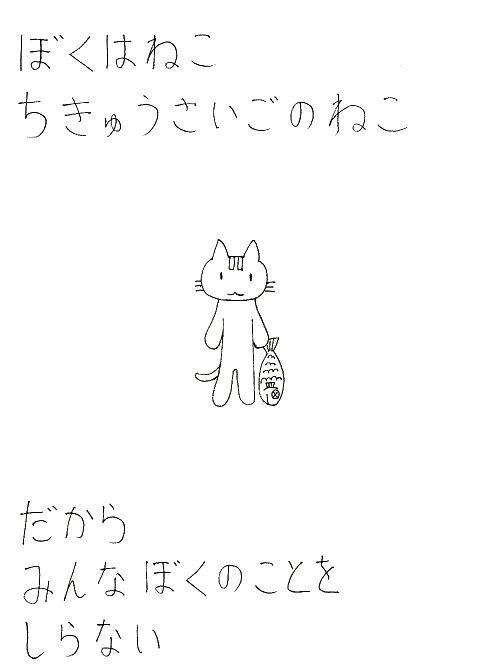 ぼくはねこ
ちきゅうさいごのねこ
だから
みんなぼくのことを
しらない